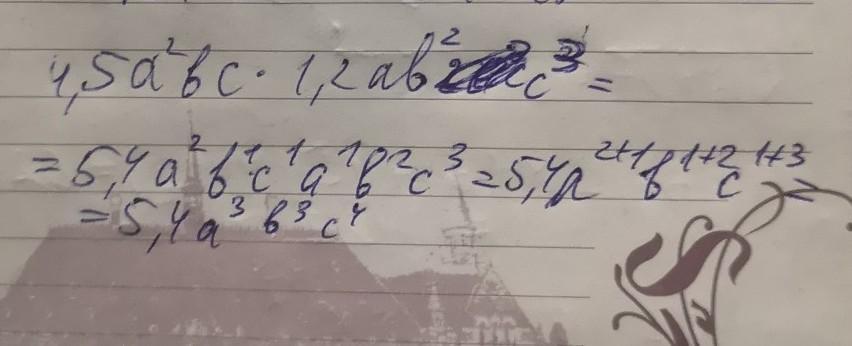 4,5a²bc · 1,2ab²c³ =
= 5,4a²b¹c¹a¹b²c³ = 5,4a²⁺¹b¹⁺²c¹⁺³ =
= 5,4a³b³c⁴